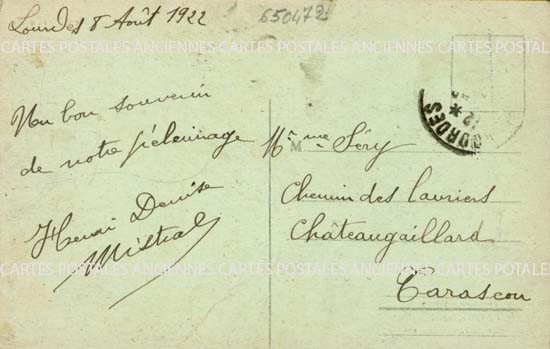 Lourdes 8 Août 1922
650472
CARTES POSTALES ANCIENNES CARTES POSTALES ANCIENNES
LOURDES
12 *
Un bon souvenir
de notre pélerinage
Henri Denise
Mistral
M
Mr me Séry
Chemin des lauriers
Chateaugaillard
Tarascon
CARTES POSTALES ANCIENNES CARTES POSTALES